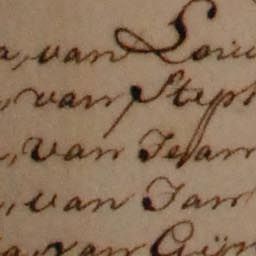 a, van Loui
, van Steph
, van Jean
, van Jan
a, van Gijs